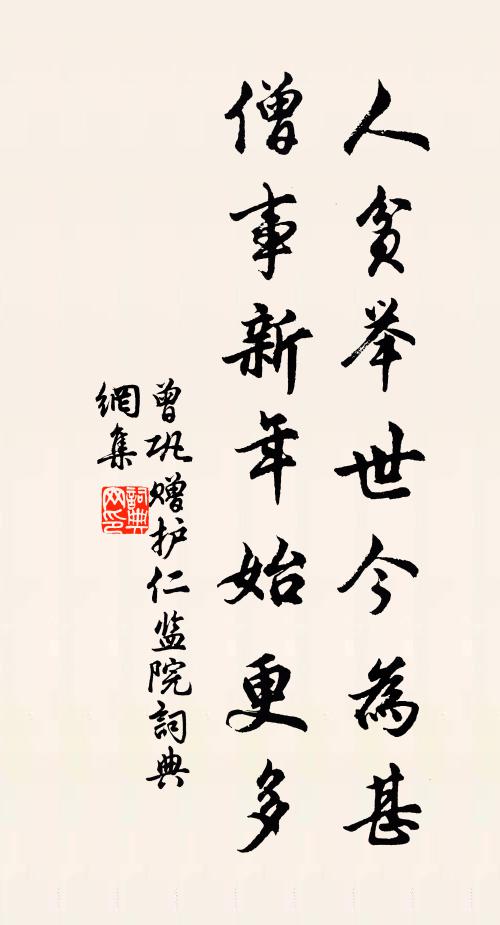 人贫举世今為甚
僧事新年始更多
曾巩赠护仁监院詞典
網集
詞典网印